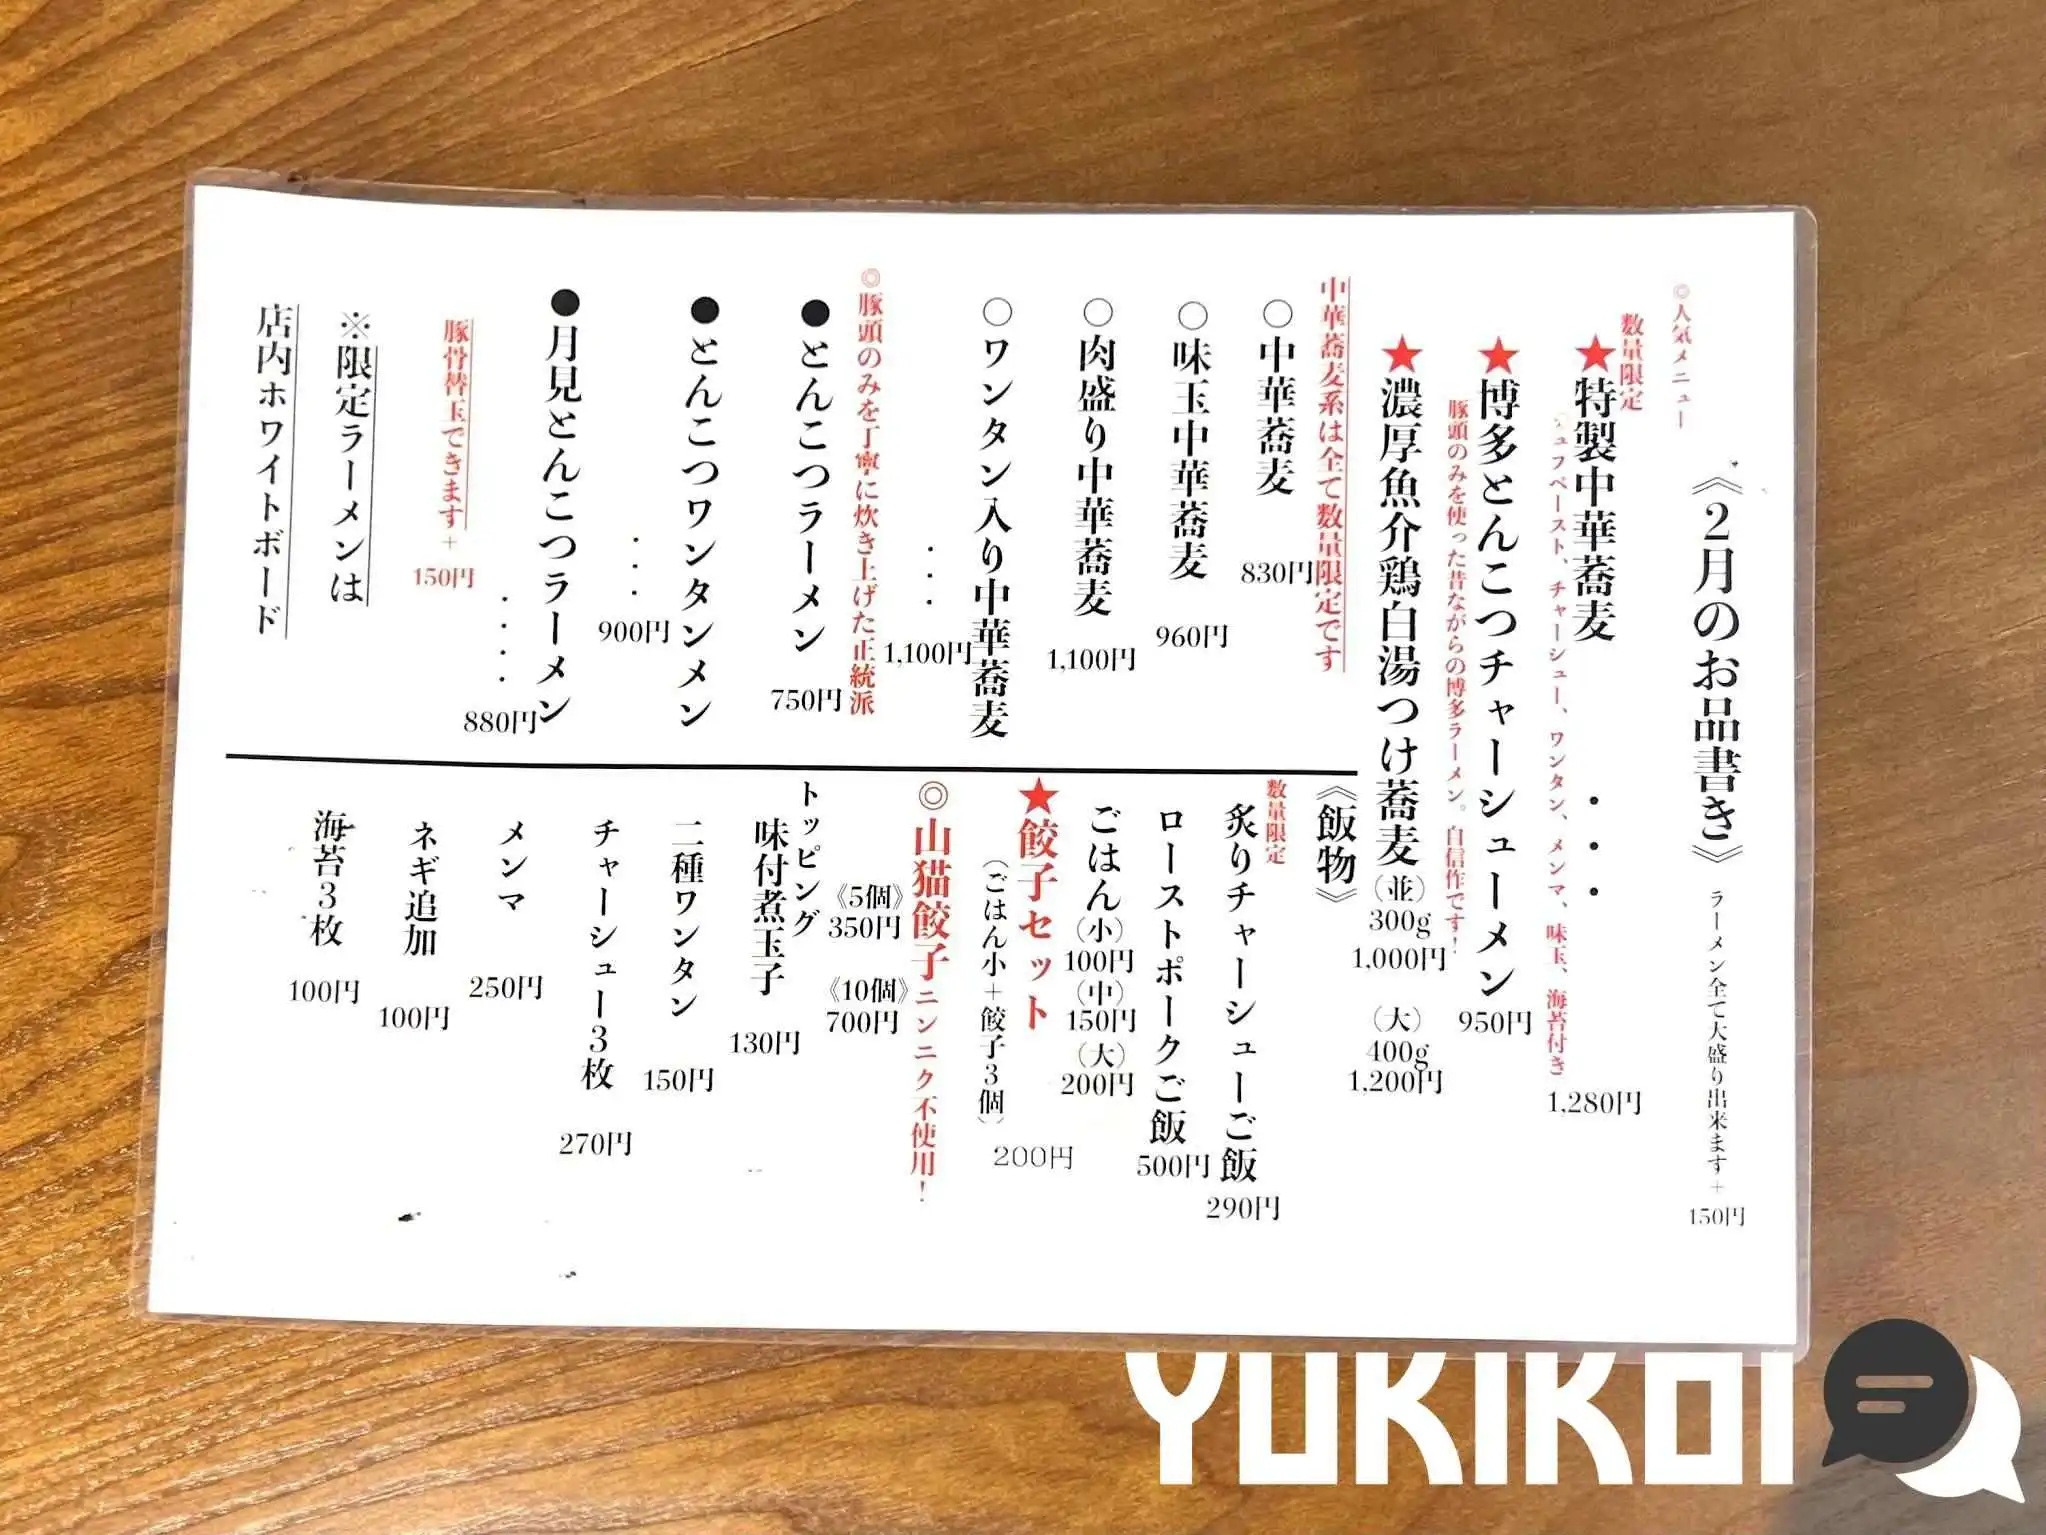 《２月のお品書き》 ラーメン全て大盛り出来ます＋150円
◎人気メニュー
数量限定
★特製中華蕎麦 ・・・ 1,280円
ュフペースト、チャーシュー、ワンタン、メンマ、味玉、海苔付き
★博多とんこつチャーシューメン 950円
豚頭のみを使った昔ながらの博多ラーメン。自信作です！
★濃厚魚介鶏白湯つけ蕎麦 （並）300g 1,000円 （大）400g 1,200円
中華蕎麦系は全て数量限定です
○中華蕎麦 830円
○味玉中華蕎麦 960円
○肉盛り中華蕎麦 1,100円
○ワンタン入り中華蕎麦
・・・1,100円
◎豚頭のみを丁寧に炊き上げた正統派
●とんこつラーメン 750円
●とんこつワンタンメン
・・・900円
●月見とんこつラーメン
・・・・880円
豚骨替玉できます＋150円
※限定ラーメンは
店内ホワイトボード
《飯物》
数量限定
炙りチャーシューご飯 290円
ローストポークご飯 500円
ごはん（小）100円（中）150円（大）200円
★餃子セット
（ごはん小＋餃子３個） 200円
◎山猫餃子ニンニク不使用！
《5個》350円 《10個》700円
トッピング
味付煮玉子 130円
二種ワンタン 150円
チャーシュー３枚 270円
メンマ 250円
ネギ追加 100円
海苔３枚 100円
YUKIKOI